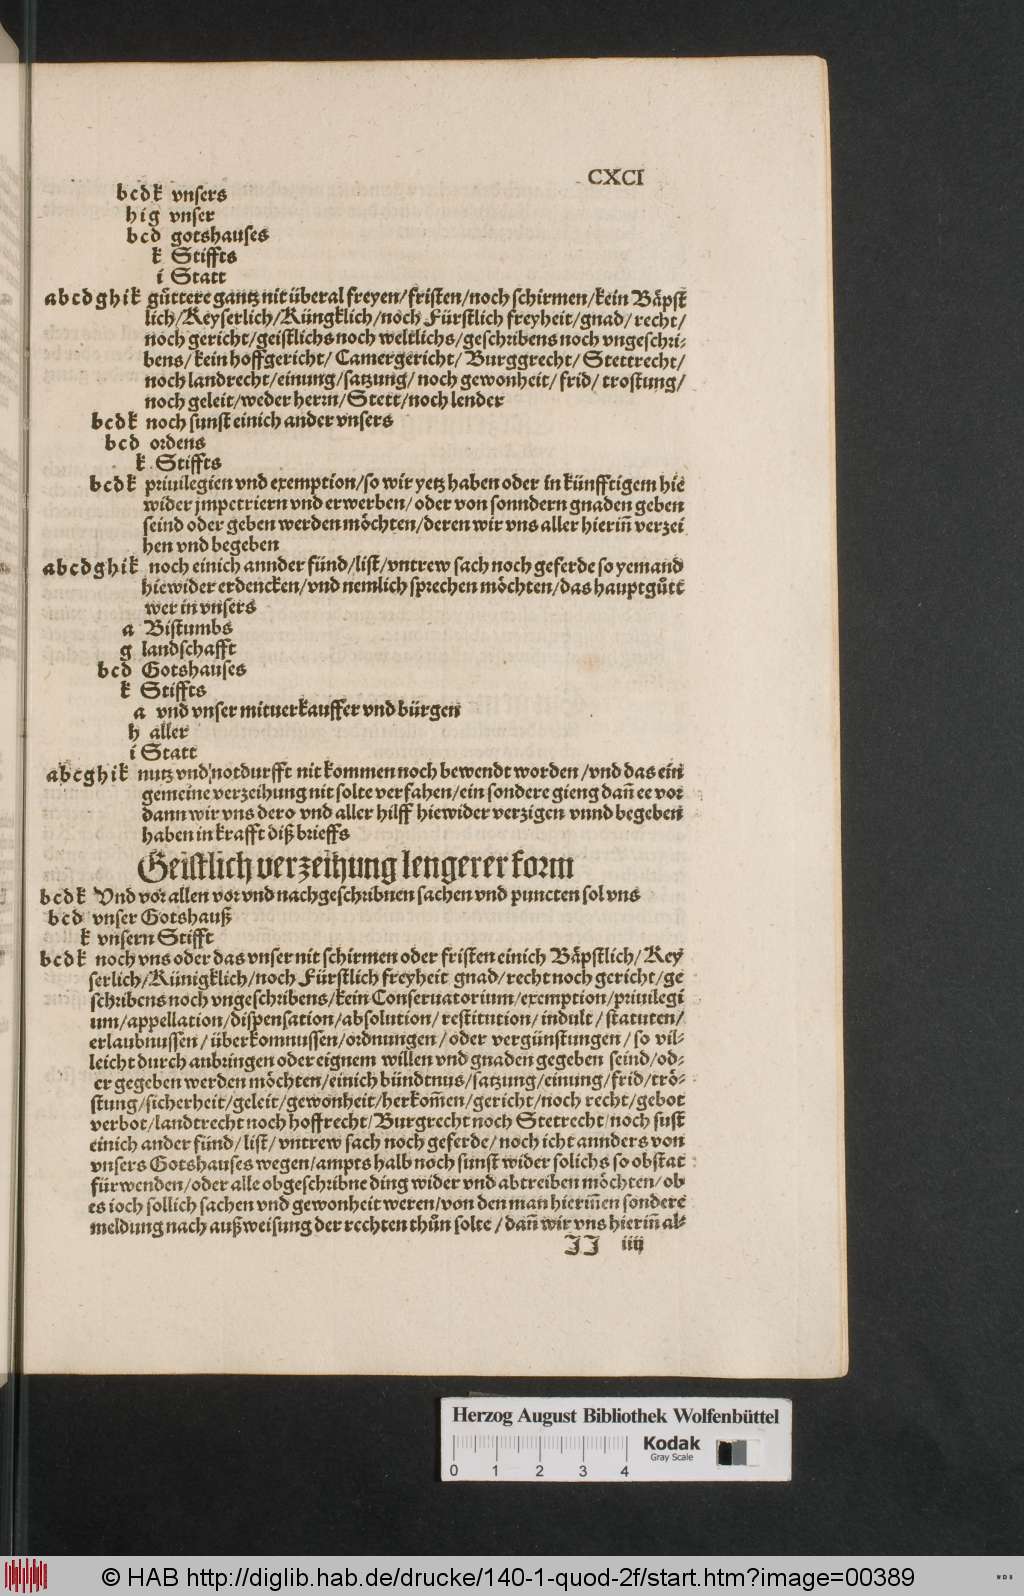 CXCI
b c d k vnsers
h i g vnser
b c d gotshauses
k Stiffts
i Statt
a b c d g h i k gůttere gantz nit überal freyen/fristen/noch schirmen/kein Bäpst
lich/Keyserlich/Küngklich/noch Fürstlich freyheit/gnad/recht/
noch gericht/geistlichs noch weltlichs/geschribens noch vngeschri-
bens/kein hoffgericht/Camergericht/Burggrecht/Stettrecht/
noch landrecht/einung/satzung/noch gewonheit/frid/trostung/
noch geleit/weder herrn/Stett/noch lender
b c d k noch sunst einich ander vnsers
b c d ordens
k Stiffts
b c d k priuilegien vnd exemption/so wir yetz haben oder in künfftigem hie
wider jmpetriern vnd erwerben/oder von sonndern gnaden geben
seind oder geben werden möchten/deren wir vns aller hierin̄ verzei
hen vnd begeben
a b c d g h i k noch einich annder fünd/list/vntrew sach noch geferde so yemand
hiewider erdencken/vnd nemlich sprechen möchten/das hauptgůtt
wer in vnsers
a Bistumbs
g landschafft
b c d Gotshauses
k Stiffts
a vnd vnser mituerkauffer vnd bürgen
h aller
i Statt
a b c g h i k nutz vnd notdurfft nit kommen noch bewendt worden/vnd das ein
gemeine verzeihung nit solte verfahen/ein sondere gieng dan̄ ee vor
dann wir vns dero vnd aller hilff hiewider verzigen vnnd begeben
haben in krafft diß brieffs
Geistlich verzeihung lengerer form
b c d k Vnd vor allen vor vnd nachgeschribnen sachen vnd puncten sol vns
b c d vnser Gotshauß
k vnsern Stifft
b c d k noch vns oder das vnser nit schirmen oder fristen einich Bäpstlich/Key
serlich/Künigklich/noch Fürstlich freyheit gnad/recht noch gericht/ge
schribens noch vngeschribens/kein Conseruatorium/exemption/priuilegi
um/appellation/dispensation/absolution/restitution/indult/statuten/
erlaubnussen/überkomnussen/ordnungen/oder vergünstungen/so vil-
leicht durch anbringen oder eignem willen vnd gnaden gegeben seind/od-
er gegeben werden möchten/einich bündtnus/satzung/einung/frid/trö-
stung/sicherheit/geleit/gewonheit/herkom̄en/gericht/noch recht/gebot
verbot/landtrecht noch hoffrecht/Burgrecht noch Stetrecht/noch sust
einich ander fünd/list/vntrew sach noch geferde/noch icht annders von
vnsers Gotshauses wegen/ampts halb noch sunst wider solichs so obstat
fürwenden/oder alle obgeschribne ding wider vnd abtreiben möchten/ob
es ioch sollich sachen vnd gewonheit weren/von den man hierin̄en sondere
meldung nach außweisung der rechten thůn solte/dan̄ wir vns hierin̄ al-
JJ iiij
Herzog August Bibliothek Wolfenbüttel
0 1 2 3 4
Kodak
Gray Scale
© HAB http://diglib.hab.de/drucke/140-1-quod-2f/start.htm?image=00389